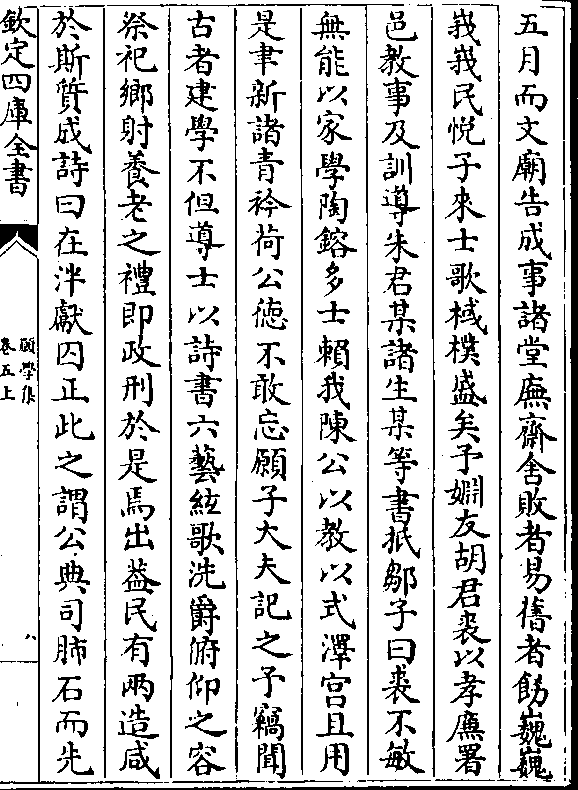 五月而文廟告成事諸堂廡齋舍敗者易舊者飭巍巍
峩峩民悅子來士歌棫樸盛矣予婣友胡君裘以孝廉署
邑教事及訓導朱君某諸生某等書抵鄒子曰裘不敏
無能以家學陶鎔多士賴我陳公以教以式澤宫且用
是聿新諸青衿荷公德不敢忘願子大夫記之予竊聞
古者建學不但導士以詩書六藝絃歌洗爵俯仰之容
祭祀鄉射養老之禮即政刑於是焉出葢民有兩造咸
於斯質成詩曰在泮獻囚正此之謂公典司肺石而先
欽定四庫全書
願學集
卷五上
八